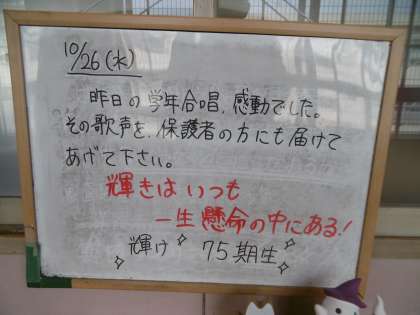 10/26(水)
昨日の学年合唱、感動でした。
その歌声を、保護者の方にも届けて
あげて下さい。
輝きは いつも
一生懸命の中にある!
輝け 75期生